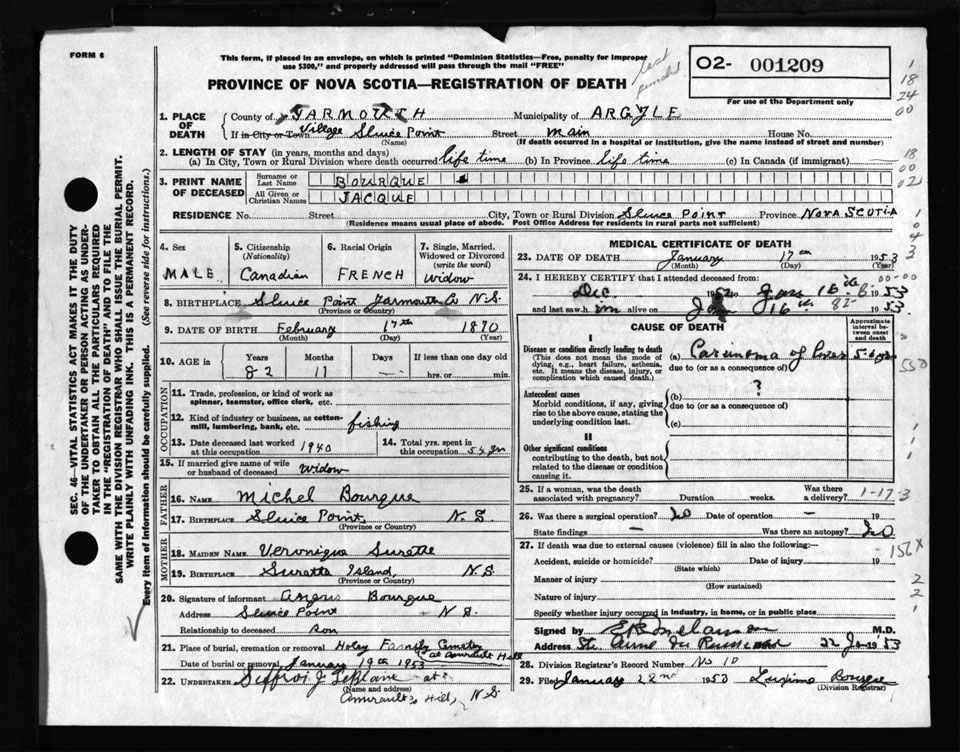 FORM 6
This form, if placed in an envelope, on which is printed "Dominion Statistics—Free, penalty for improper
use $300," and properly addressed will pass through the mail "FREE"
PROVINCE OF NOVA SCOTIA—REGISTRATION OF DEATH
O2- 001209
For use of the Department only
1. PLACE OF DEATH
County of YARMOUTH Municipality of ARGYLE
If in City or Town Village Sluice Point Street main House No.
(Name) (If death occurred in a hospital or institution, give the name instead of street and number)
2. LENGTH OF STAY (in years, months and days)
(a) In City, Town or Rural Division where death occurred life time (b) In Province life time (c) In Canada (if immigrant)
3. PRINT NAME OF DECEASED
Surname or Last Name BOURQUE
All Given or Christian Names JACQUE
RESIDENCE No. Street City, Town or Rural Division Sluice Point Province NOVA SCOTIA
(Residence means usual place of abode. Post Office Address for residents in rural parts not sufficient)
4. Sex MALE
5. Citizenship (Nationality) Canadian
6. Racial Origin FRENCH
7. Single, Married, Widowed or Divorced (write the word) widow
8. BIRTHPLACE Sluice Point Yarmouth Co N.S.
(Province or Country)
9. DATE OF BIRTH February 17th 1870
(Month) (Day) (Year)
10. AGE in Years 82 Months 11 Days — If less than one day old hrs. or min.
OCCUPATION
11. Trade, profession, or kind of work as spinner, teamster, office clerk, etc.
12. Kind of industry or business, as cotton-mill, lumbering, bank, etc. fishing
13. Date deceased last worked at this occupation 1940
14. Total yrs. spent in this occupation 54 yrs
15. If married give name of wife or husband of deceased widow
FATHER
16. NAME Michel Bourque
17. BIRTHPLACE Sluice Point, N.S.
(Province or Country)
MOTHER
18. MAIDEN NAME Veronique Surette
19. BIRTHPLACE Surette Island, N.S.
(Province or Country)
20. Signature of informant Angus Bourque
Address Sluice Point N.S.
Relationship to deceased son
21. Place of burial, cremation or removal Holey Family Cemetry
at Amirault Hill
Date of burial or removal January 19th 1953
22. UNDERTAKER Siffroi J LeBlanc at
(Name and address)
Amirault's Hill, N.S
MEDICAL CERTIFICATE OF DEATH
23. DATE OF DEATH January 17th 1953
(Month) (Day) (Year)
24. I HEREBY CERTIFY that I attended deceased from:
Dec. 1952 to Jan 16th 1953
and last saw him alive on Jan 16th 1953.
CAUSE OF DEATH
Approximate interval between onset and death
I
Disease or condition directly leading to death
(This does not mean the mode of dying, e.g., heart failure, asthenia, etc. It means the disease, injury, or complication which caused death.)
(a) Carcinoma of liver
due to (or as a consequence of)
Antecedent causes
Morbid conditions, if any, giving rise to the above cause, stating the underlying condition last.
(b) ?
due to (or as a consequence of)
(c)
II
Other significant conditions
contributing to the death, but not related to the disease or condition causing it.
25. If a woman, was the death associated with pregnancy? Duration weeks. Was there a delivery?
26. Was there a surgical operation? No Date of operation — 19
State findings — Was there an autopsy? No
27. If death was due to external causes (violence) fill in also the following:—
Accident, suicide or homicide? Date of injury 19
(State which)
Manner of injury
(How sustained)
Nature of injury
Specify whether injury occurred in industry, in home, or in public place
Signed by M.D.
Address Ste. Anne du Ruisseau 22 Jan 1953
28. Division Registrar's Record Number No 10
29. Filed January 22nd 1953 Bourque
(Division Registrar)
SEC. 46—VITAL STATISTICS ACT MAKES IT THE DUTY
OF THE UNDERTAKER OR PERSON ACTING AS UNDER-
TAKER TO OBTAIN ALL THE PARTICULARS REQUIRED
IN THE "REGISTRATION OF DEATH" AND TO FILE THE
SAME WITH THE DIVISION REGISTRAR WHO SHALL ISSUE THE BURIAL PERMIT.
WRITE PLAINLY WITH UNFADING INK. THIS IS A PERMANENT RECORD.
Every item of information should be carefully supplied. (See reverse side for instructions.)